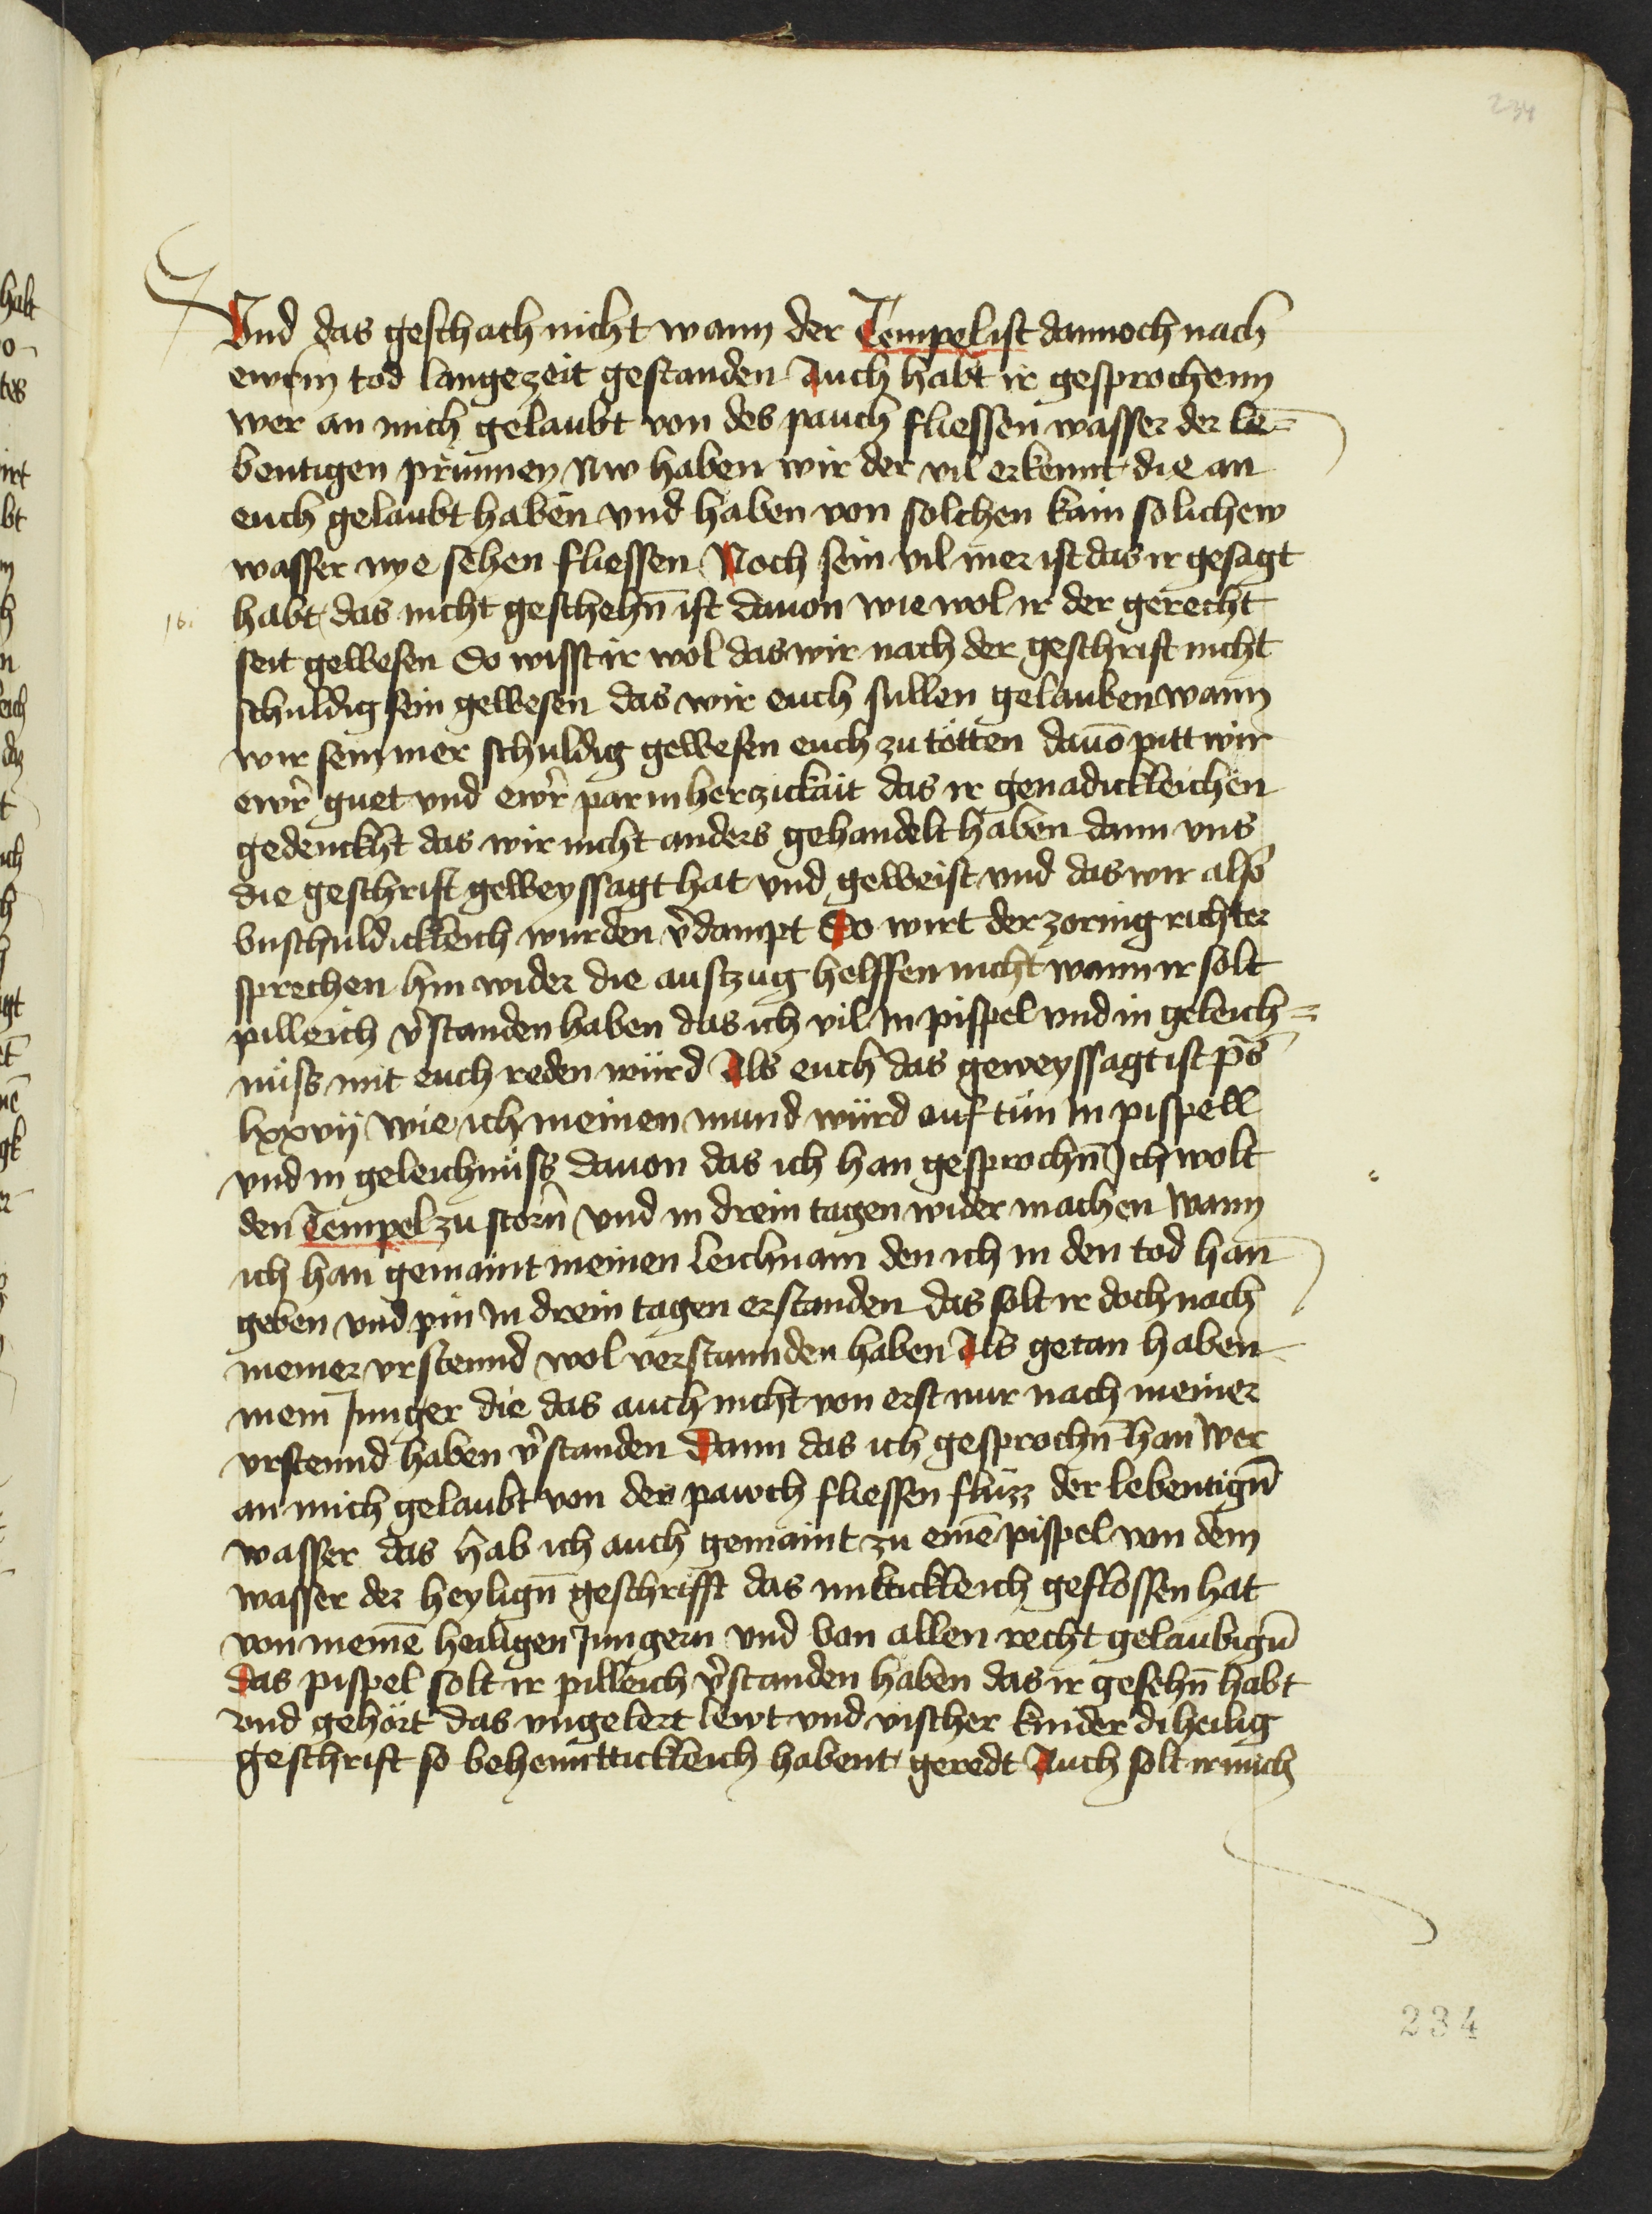 234
Vnd das geschach nicht wann der Tempel ist dannoch nach
ewrm tod lange zeit gestanden Auch habt ir gesprochenn
wer an mich gelaubt von des pauch fliessen wasser der le=
bentigen prunnen Nw haben wir der vil erkennt die an
euch gelaubt haben vnd haben von solchen kain solichew
wasser nye sehen fliessen Noch sein vil mer ist das ir gesagt
habt das nicht geschehn̄ ist dauon wie wol ir der gerecht
seit gewesen So wisst ir wol das wir nach der geschrift nicht
schuldig sein gewesen das wir euch sullen gelauben wann
wir sein mer schuldig gewesen euch zu tötten dauō pitt wir
ewr̄ guet vnd ewr̄ parmherczickait das ir genadickleichen
gedenckht das wir nicht anders gehandelt haben dann vns
die geschrift geweyssagt hat vnd geweist vnd das wir also
vnschuldickleich wurden v̄dampt Do wirt der zornig richter
sprechen hin wider die auszug helffen nicht wann ir solt
pilleich v̄standen haben das ich vil in pispel vnd in geleich=
nüss mit euch reden würd Als euch das geweyssagt ist ps̄
lxxvij wie ich meinen mund würd auf tün in pispell
vnd in geleichnüss dauon das ich han gesprochn̄ Ich wolt
den Tempel zu störn̄ vnd in drein tagen wider machen wann
ich han gemaint meinen leichnam den ich in den tod han
geben vnd pin in drein tagen erstanden das solt ir doch nach
meiner vrstennd wol verstannden haben Als getan haben
mein Junger die das auch nicht von erst nur nach meiner
vrstennd haben v̄standen Dann das ich gesprochn̄ han wer
an mich gelaubt von des pawch fliessen flüzz der lebentign̄
wasser das hab ich auch gemaint zu einē pispel von dem
wasser der heylign̄ geschrifft das miltickleich geflossen hat
von meinē heiligen Jungern vnd von allen recht gelaubign̄
das pispel solt ir pilleich v̄standen haben das ir gesehn̄ habt
vnd gehört das vngelert lewt vnd vischer kinder di heilig
geschrift so behenntickleich habent geredt Auch solt ir mich
234